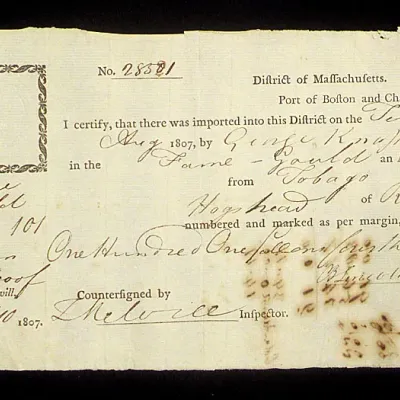 No. 28581
District of Massachusetts.
Port of Boston and Ch
I certify, that there was imported into this District on the
Aug 1807, by George
in the Fame - Gould an
from Tobago
Hogshead of R
101
numbered and marked as per margin,
One Hundred One
oof
will.
Countersigned by
10 1807.
Melvill Inspector.